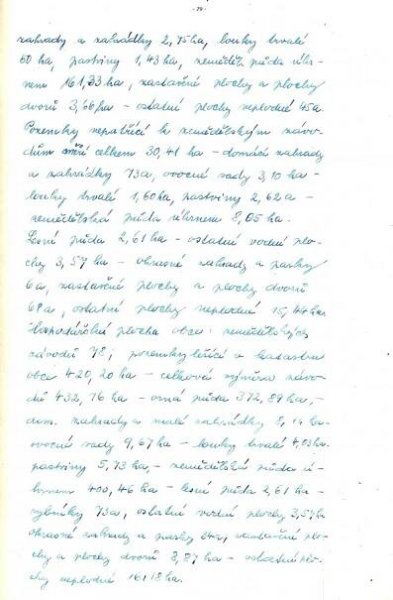 - 29 -
zahrady a zahrádky 2,75 ha, louky trvalé
60 ha, pastviny 1,43 ha, zeměděl. půda úhr-
nem 161,33 ha, zastavěné plochy a plochy
dvorů 3,66 ha - ostatní plochy neplodné 45a.
Pozemky nepatřící k zemědělským závo-
dům měří celkem 30,41 ha - domácí zahrady
a zahrádky 73a, ovocné sady 3,10 ha -
louky trvalé 1,60 ha, pastviny 2,62 a -
zemědělská půda úhrnem 8,05 ha.
Lesní půda 2,61 ha - ostatní vodní plo-
chy 3,57 ha - okrasné zahrady a parky
6a, zastavěné plochy a plochy dvorů
69a, ostatní plochy neplodné 15,44 ha.
Hospodářská plocha obce: zemědělských
závodů 78, pozemky ležící v katastru
obce 420,20 ha - celková výměra závo-
dů 432,76 ha - orná půda 372,89 ha, -
dom. zahrady a malé zahrádky 8,14 ha -
ovocné sady 9,67 ha - louky trvalé 4,03 ha.
pastviny 5,73 ha, - zemědělská půda ú-
hrnem 400,46 ha - lesní půda 2,61 ha -
rybníky 73a, ostatní vodní plochy 3,57 ha
okrasné zahrady a parky 24a, zastavěné plo-
chy a plochy dvorů 8,87 ha - ostatní plo-
chy neplodné 16,18 ha.